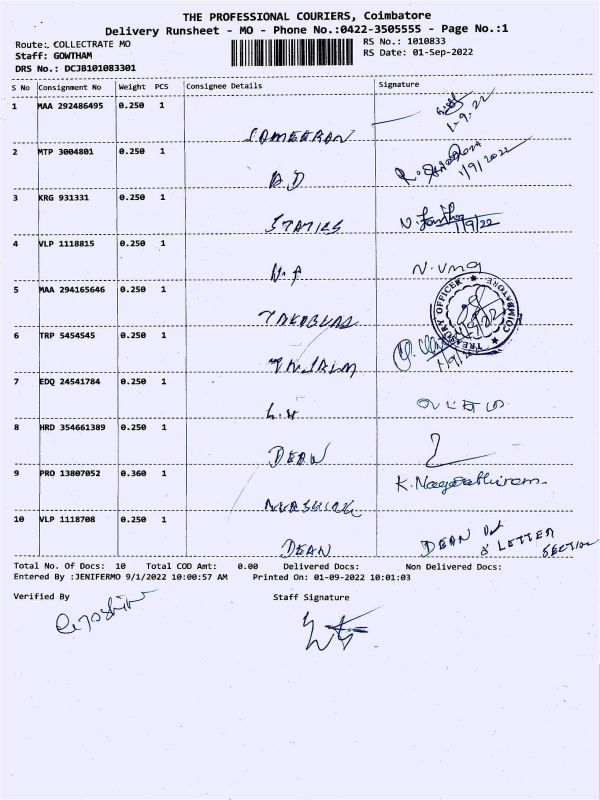 THE PROFESSIONAL COURIERS, Coimbatore
Delivery Runsheet - MO - Phone No.:0422-3505555 - Page No.:1
Route: COLLECTRATE MO
RS No.: 1010833
Staff: GOWTHAM
RS Date: 01-Sep-2022
DRS No.: DCJB101083301
S No Consignment No Weight PCS Consignee Details Signature
1 MAA 292486495 0.250 1
1-9-22
2 MTP 3004801 0.250 1
1/9/2022
A.D
3 KRG 931331 0.250 1
1/9/22
4 VLP 1118815 0.250 1
N.uma
5 MAA 294165646 0.250 1
TREASURY OFFICER
COIMBATORE
6 TRP 5454545 0.250 1
7 EDQ 24541784 0.250 1
8 HRD 354661389 0.250 1
DEAN
9 PRO 13807052 0.360 1
10 VLP 1118708 0.250 1
DEAN
DEAN
LETTER
SECTION
Total No. Of Docs: 10 Total COD Amt: 0.00 Delivered Docs: Non Delivered Docs:
Entered By :JENIFERMO 9/1/2022 10:00:57 AM Printed On: 01-09-2022 10:01:03
Verified By Staff Signature